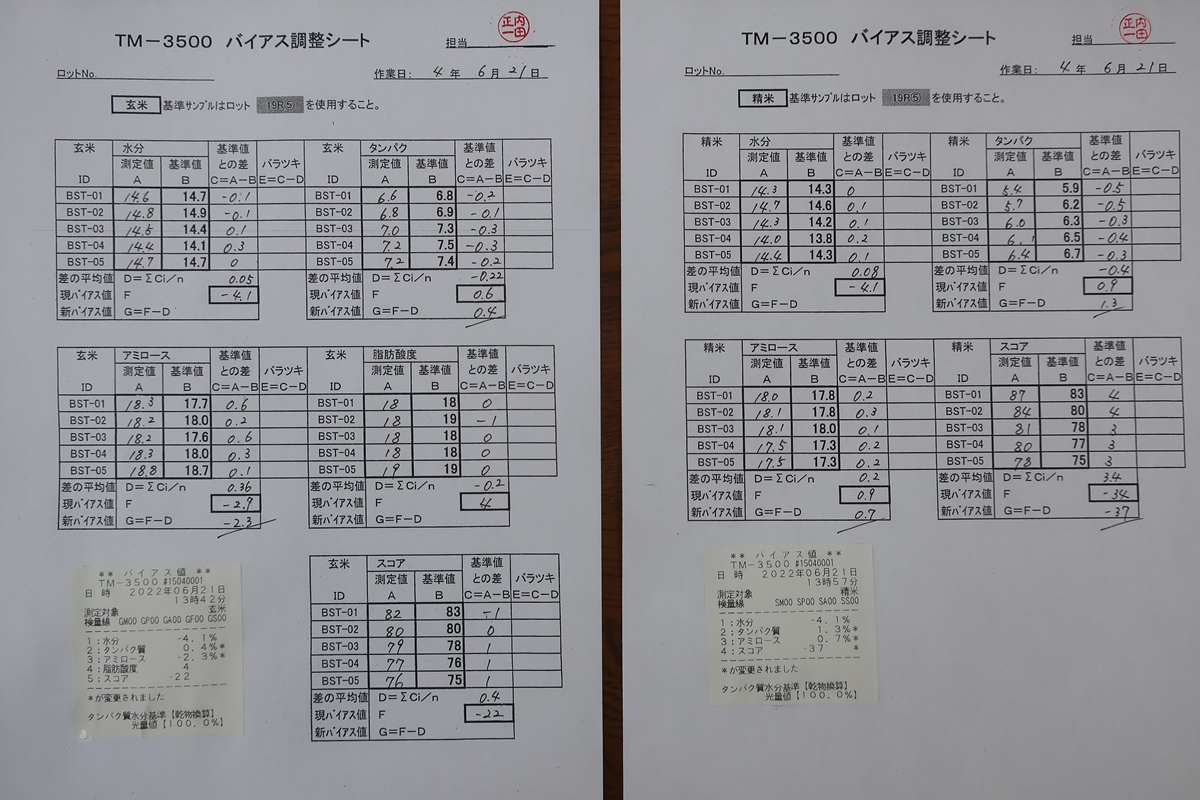 TM-3500 バイアス調整シート
担当
ロットNo.
作業日: 4 年 6 月 21 日
玄米 基準サンプルはロット 19R⑤ を使用すること。
玄米 水分 基準値 玄米 タンパク 基準値
測定値 基準値 との差 バラツキ 測定値 基準値 との差 バラツキ
ID A B C=A-B E=C-D ID A B C=A-B E=C-D
BST-01 14.6 14.7 -0.1 BST-01 6.6 6.8 -0.2
BST-02 14.8 14.9 -0.1 BST-02 6.8 6.9 -0.1
BST-03 14.5 14.4 0.1 BST-03 7.0 7.3 -0.3
BST-04 14.4 14.1 0.3 BST-04 7.2 7.5 -0.3
BST-05 14.7 14.7 0 BST-05 7.2 7.4 -0.2
差の平均値 D=ΣCi/n 0.05 差の平均値 D=ΣCi/n -0.22
現バイアス値 F -4.1 現バイアス値 F 0.6
新バイアス値 G=F-D 新バイアス値 G=F-D 0.4
玄米 アミロース 基準値 玄米 脂肪酸度 基準値
測定値 基準値 との差 バラツキ 測定値 基準値 との差 バラツキ
ID A B C=A-B E=C-D ID A B C=A-B E=C-D
BST-01 18.3 17.7 0.6 BST-01 18 18 0
BST-02 18.2 18.0 0.2 BST-02 18 19 -1
BST-03 18.2 17.6 0.6 BST-03 18 18 0
BST-04 18.3 18.0 0.3 BST-04 18 18 0
BST-05 18.8 18.7 0.1 BST-05 19 19 0
差の平均値 D=ΣCi/n 0.36 差の平均値 D=ΣCi/n -0.2
現バイアス値 F 現バイアス値 F 4
新バイアス値 G=F-D -2.3 新バイアス値 G=F-D
玄米 スコア 基準値
測定値 基準値 との差 バラツキ
ID A B C=A-B E=C-D
BST-01 82 83 -1
BST-02 80 80 0
BST-03 79 78 1
BST-04 77 76 1
BST-05 76 75 1
差の平均値 D=ΣCi/n 0.4
現バイアス値 F -22
新バイアス値 G=F-D
** バイアス値 **
TM-3500 #15040001
日 時 2022年06月21日
13時42分
測定対象 玄米
検量線 GM00 GP00 GA00 GF00 GS00
1:水分 -4.1%
2:タンパク質 0.4%*
3:アミロース -2.3%*
4:脂肪酸度 4
5:スコア -22
*が変更されました
タンパク質水分基準【乾物換算】
光量値【100.0%】
TM-3500 バイアス調整シート
担当
ロットNo.
作業日: 4 年 6 月 21 日
精米 基準サンプルはロット 19R⑤ を使用すること。
精米 水分 基準値 精米 タンパク 基準値
測定値 基準値 との差 バラツキ 測定値 基準値 との差 バラツキ
ID A B C=A-B E=C-D ID A B C=A-B E=C-D
BST-01 14.3 14.3 0 BST-01 5.4 5.9 -0.5
BST-02 14.7 14.6 0.1 BST-02 5.7 6.2 -0.5
BST-03 14.3 14.2 0.1 BST-03 6.0 6.3 -0.3
BST-04 14.0 13.8 0.2 BST-04 6.1 6.5 -0.4
BST-05 14.4 14.3 0.1 BST-05 6.4 6.7 -0.3
差の平均値 D=ΣCi/n 0.08 差の平均値 D=ΣCi/n -0.4
現バイアス値 F -4.1 現バイアス値 F 0.9
新バイアス値 G=F-D 新バイアス値 G=F-D 1.3
精米 アミロース 基準値 精米 スコア 基準値
測定値 基準値 との差 バラツキ 測定値 基準値 との差 バラツキ
ID A B C=A-B E=C-D ID A B C=A-B E=C-D
BST-01 18.0 17.8 0.2 BST-01 87 83 4
BST-02 18.1 17.8 0.3 BST-02 84 80 4
BST-03 18.1 18.0 0.1 BST-03 81 78 3
BST-04 17.5 17.3 0.2 BST-04 80 77 3
BST-05 17.5 17.3 0.2 BST-05 78 75 3
差の平均値 D=ΣCi/n 0.2 差の平均値 D=ΣCi/n 3.4
現バイアス値 F 0.9 現バイアス値 F -34
新バイアス値 G=F-D 0.7 新バイアス値 G=F-D -37
** バイアス値 **
TM-3500 #15040001
日 時 2022年06月21日
13時57分
測定対象 精米
検量線 SM00 SP00 SA00 SS00
1:水分 -4.1%
2:タンパク質 1.3%*
3:アミロース 0.7%*
4:スコア -37 *
*が変更されました
タンパク質水分基準【乾物換算】
光量値【100.0%】